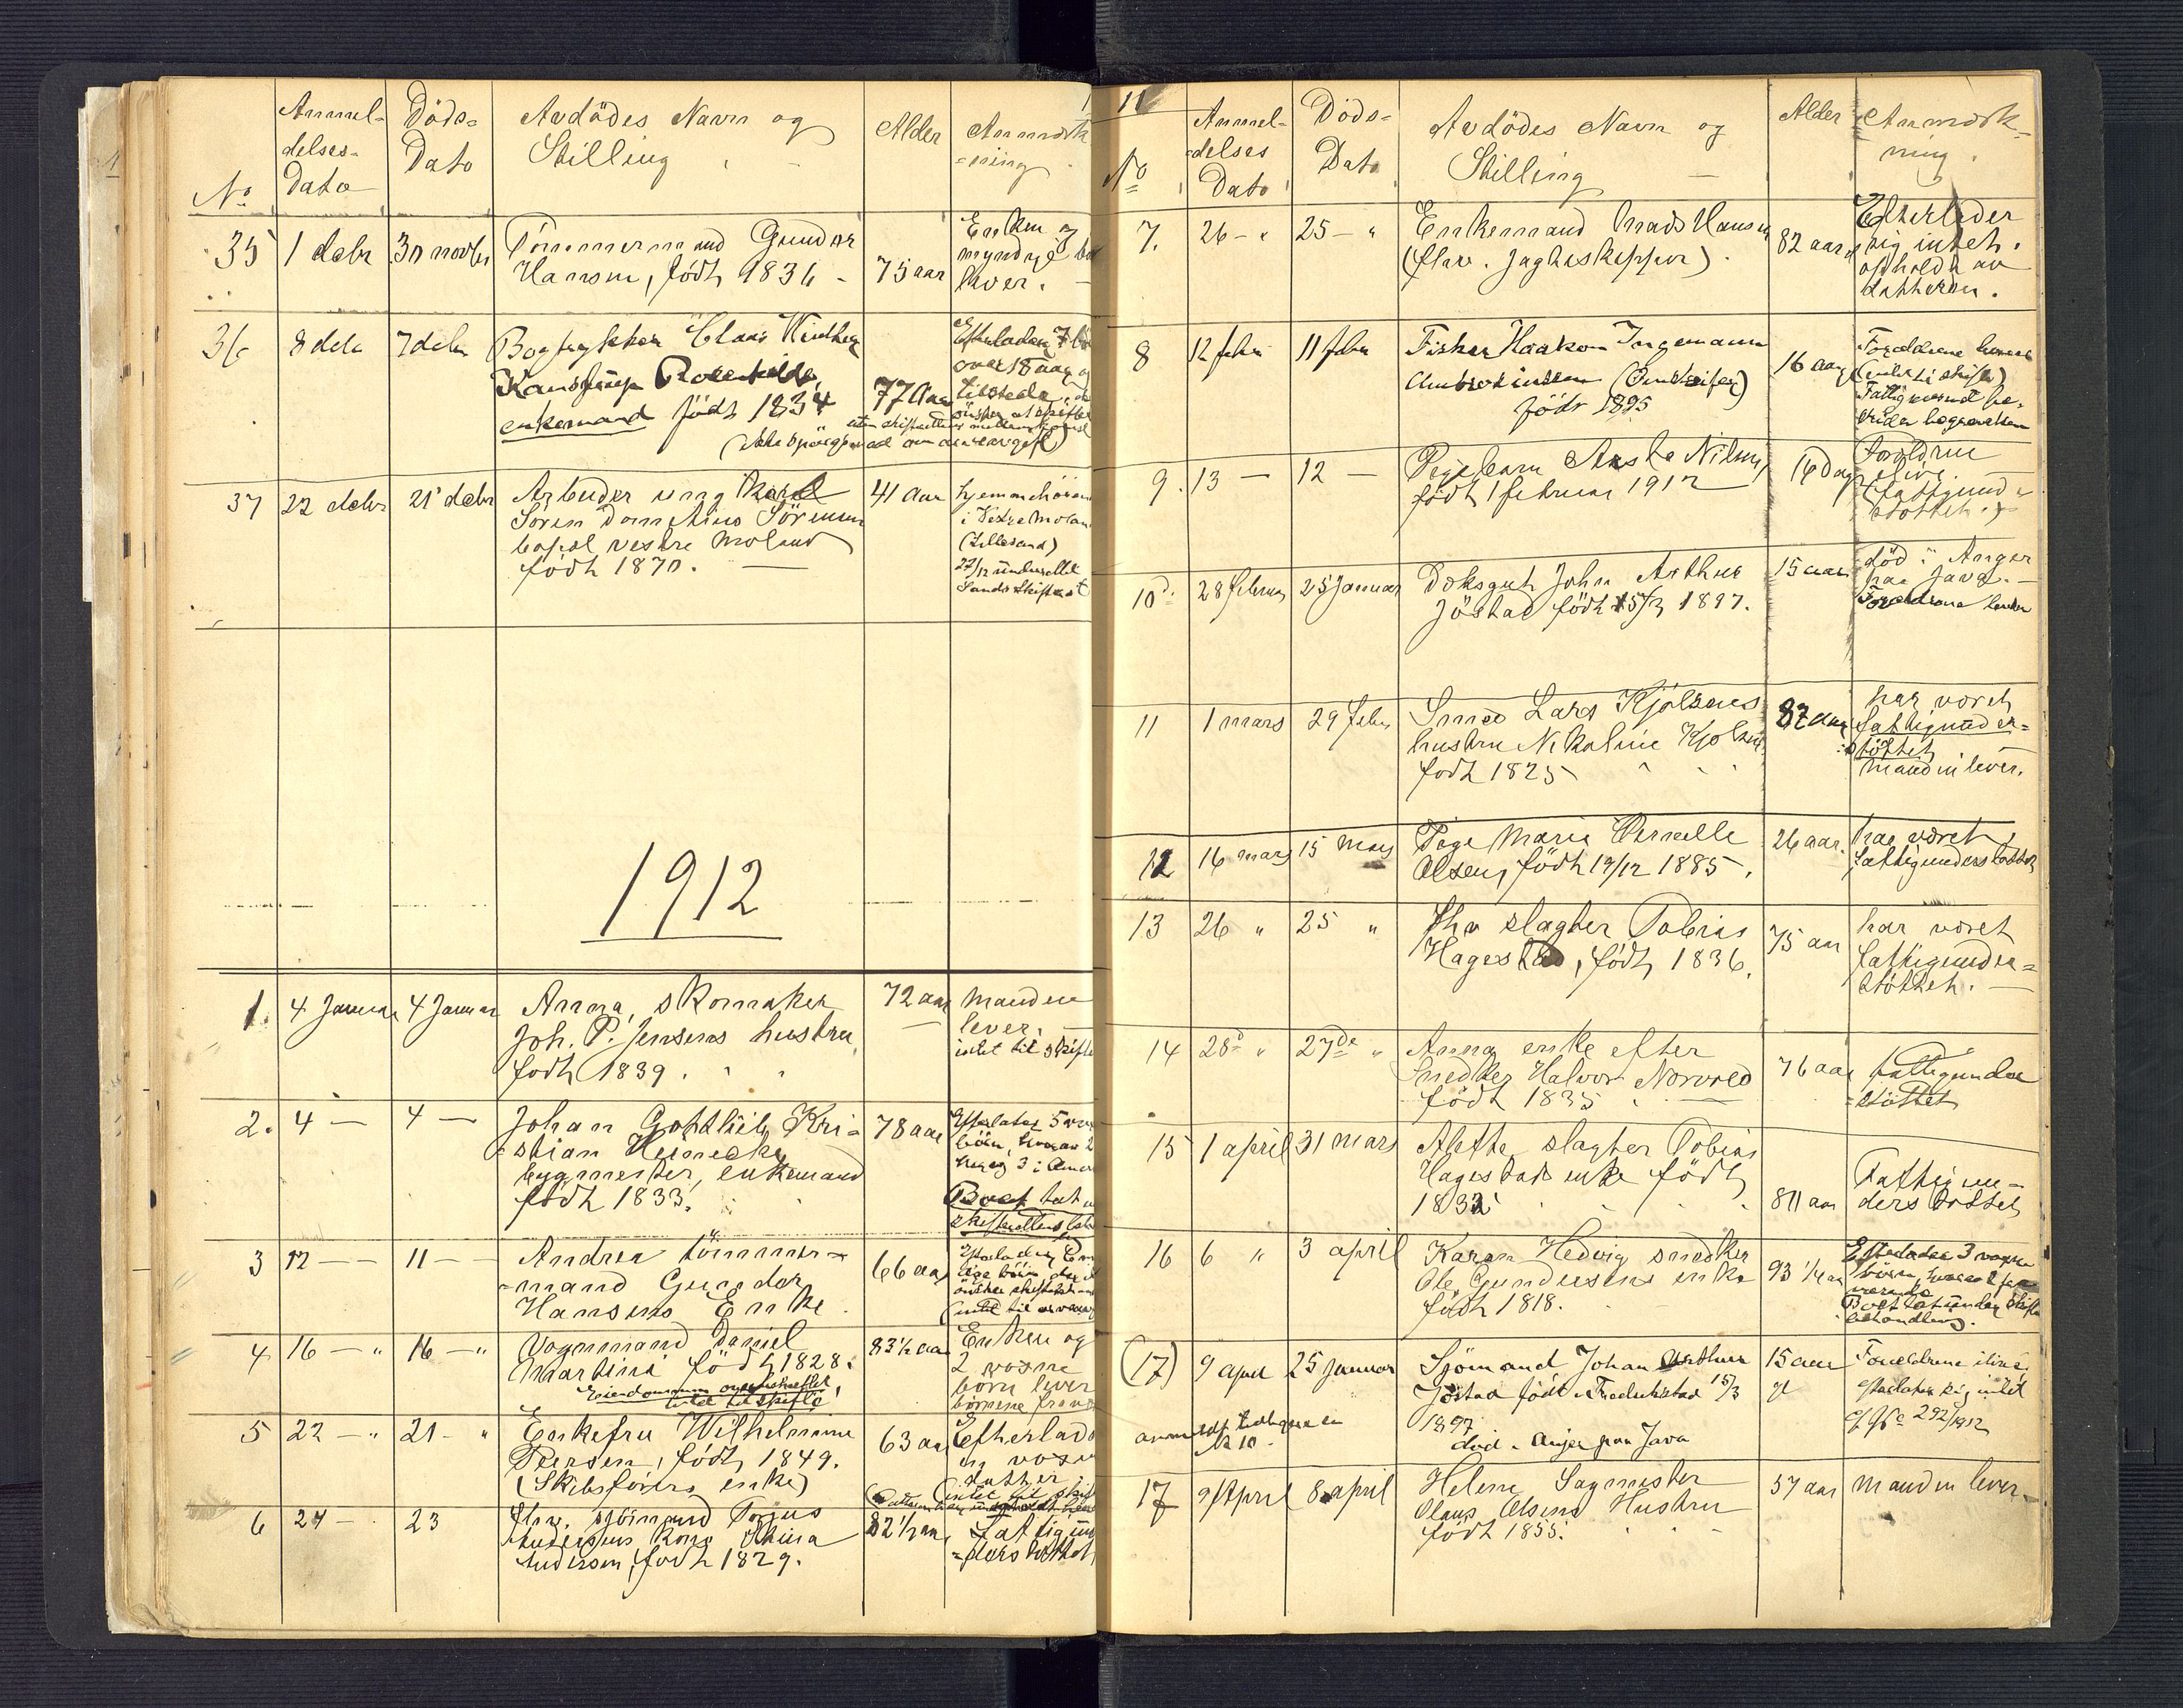 No
Anmel-
delses-
Dato
Døds-
Dato
Avdödes Navn og
Stilling
Alder
Anmærk
-ning
35
1 debr
30 novbr
Tömmermand Gunder
Hansen, födt 1836 -
75 aar
Enken og
myndige
lever.
36
8 debr
7 debr
Bogtrykker Claus Windberg
enkemand födt 1834
77 Aar
Efterlader 7
over 18 aar og
tilstede
37
22 debr
21 debr
Arbeider ung Karl
Sören Sörensen
bopel vestre Moland
födt 1870.
41 Aar
hjemmehören
i Vestre Molan
(Lillesand)
22/12 underrettet
Sands Skifteret
1912
1.
4 Januar
4 Januar
Anna, skomaker
Joh. P. Jensens hustru
födt 1839.
72 aar
Manden
lever.
intet til skifte
2.
4 —
4 —
Johan Gottlieb Kri-
stian Heinecke
bygmester, enkemand
födt 1833.
78 aar
Efterlater 5
börn, hvorav 2
her og 3 i Amer
Boet tat u
3
12 —
11 —
Andrea tömmer-
mand Gunder
Hansens Enke
66 aar
4
16 — "
16 — "
Vognmand Daniel
Martini födt 1828.
intet til skifte
83 1/2 aar
Enken og
2 voxne
börn lever
5
22 — "
21 — "
Enkefru Wilhelmine
Peersen, födt 1849.
(Skibsförers enke)
63 aar
Efterlad
en voxe
datter
(intet til skif
6
24 —
23
Flrv. sjömand Torjus
Andersens Kone
Andersen, födt 1829.
82 1/2 aar
Fattigun
-derstöttet
11
No
Anmel-
-delses
Dato
Döds-
Dato
Avdödes Navn og
Stilling
Alder
Anmærk-
ning.
7.
26 - "
25 - "
Enkemand Mads Hansen
(flrv. Jagtskipper).
82 aar
Efterlader
sig intet.
opholdt av
datteren.
8
12 febr
11 febr
Fisker Haakon Ingemann
födt 1895
16 aar
Forældrene lever
(intet til skifte)
Fattigvæsenet be-
strider begravelsen
9.
13 —
12 —
Pigebarn Nilsen,
födt 1 februar 1912
Forældrene
ilive
(fattigund-
støttet.)
10
28 februar
25 Januar
Dæksgut John Arthur
Jöstad födt 15/3 1897.
15 aar
död i Anger
paa Java. —
Forældrene lever
11
1 mars
29 febr
Smed Lars Kjölsnes
hustru Nikoline
födt 1825
87 aar
har været
fattigunder-
støttet
manden lever.
12
16 mars
15 mars
Pige Marie Pernille
Olsen, födt 19/12 1885.
26 aar.
har været
fattigunderstöttet
13
26 "
25 "
Fhv slagter Tobias
Hagestad, födt 1836.
75 aar
har været
fattigunder-
stöttet. —
14
28d "
27de "
Anna enke efter
Snedker Halvor
födt 1835
76 aar
fattigunder
-støttet
15
1 april
31 mars
Alette slagter Tobias
Hagestads enke födt
1832
80 aar
Fattigun-
derstöttet
16
6 "
3 april
Karen Hedvig snedker
Ole Gundersens enke
födt 1818.
93 1/4 aar
Efterlader 3 voxne
börn,
Boet tat under skifte
behandling.
(17)
9 april
25 januar
Sjömand Johan Arthur
Jöstad födt i Fredrikstad 15/3
1897
död i Anjer paa Java
15 aar
Forældrene ilive
efterlater sig intet
292/1912
No 10.
17
9 April
8 april
Helene Sagmester
Olaus Olsens Hustru
födt 1855.
57 aar
manden lever